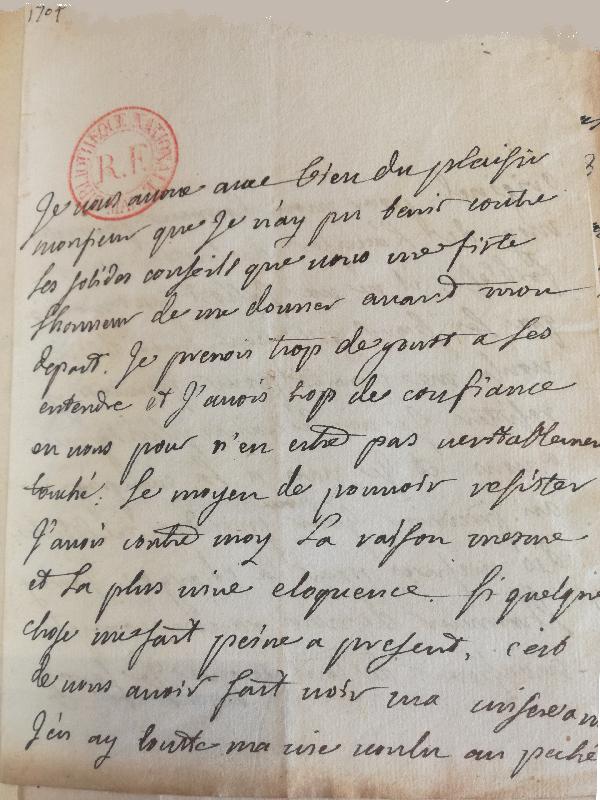 1701
BIBLIOTHEQUE NATIONALE
R.F.
MAN
Je vous avoue avec bien du plaisir
monsieur que Je n'ay pu tenir contre
les solides conseils que vous me fiste
l'honneur de me donner avand mon
depart. Je prenois trop de goust a les
entendre et J'avois trop de confiance
en vous pour n'en estre pas veritablemen
touché. Le moyen de pouvoir resister
J'avois contre moy la raison mesme
et la plus vive eloquence. si quelque
chose me fait peine a present, c'est
de vous avoir fait voir ma misere
J'en ay toutte ma vie voulu au peché